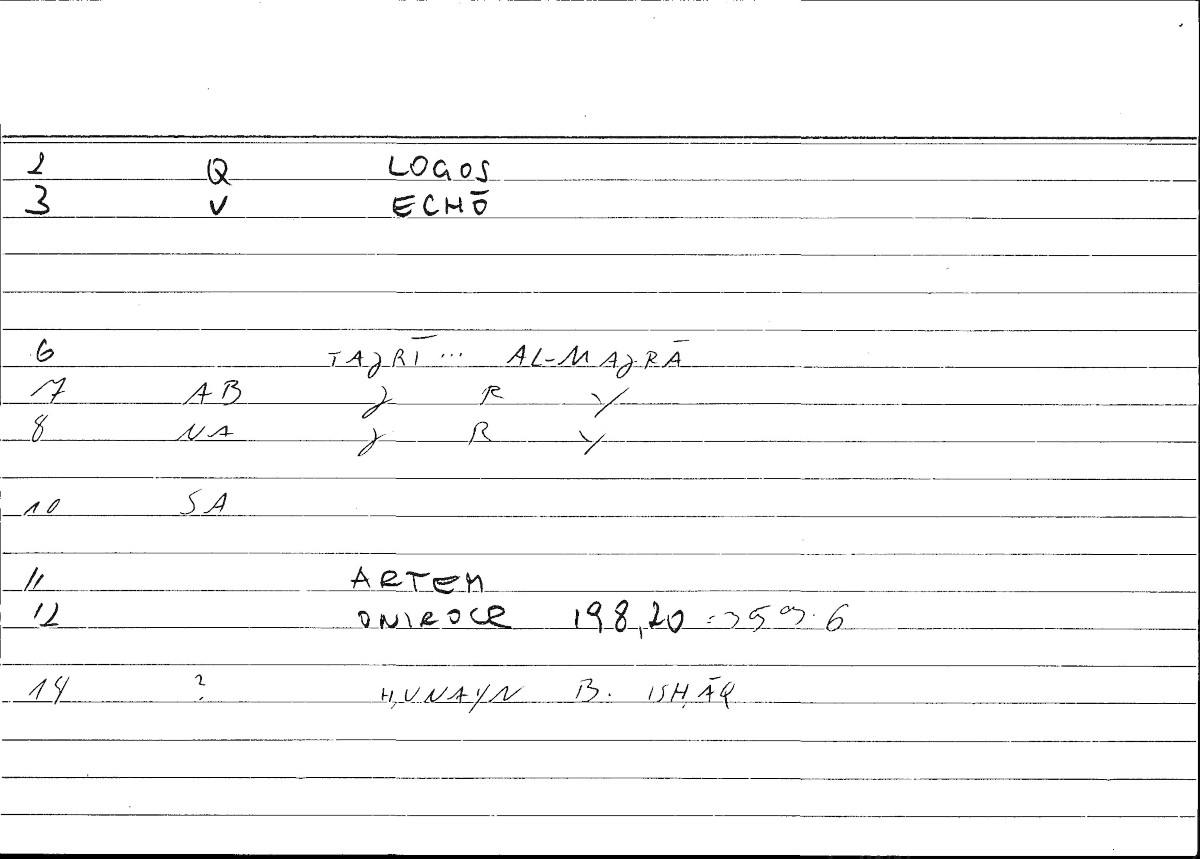 2 Q LOGOS
3 V ECHŌ
6 TAJRĪ... AL-MAJRĀ
7 AB J R Y
8 NA J R Y
10 SA
11 ARTEM
12 ONIROCR 198,20 = 359.6
14 ? ḤUNAYN B. ISḤĀQ